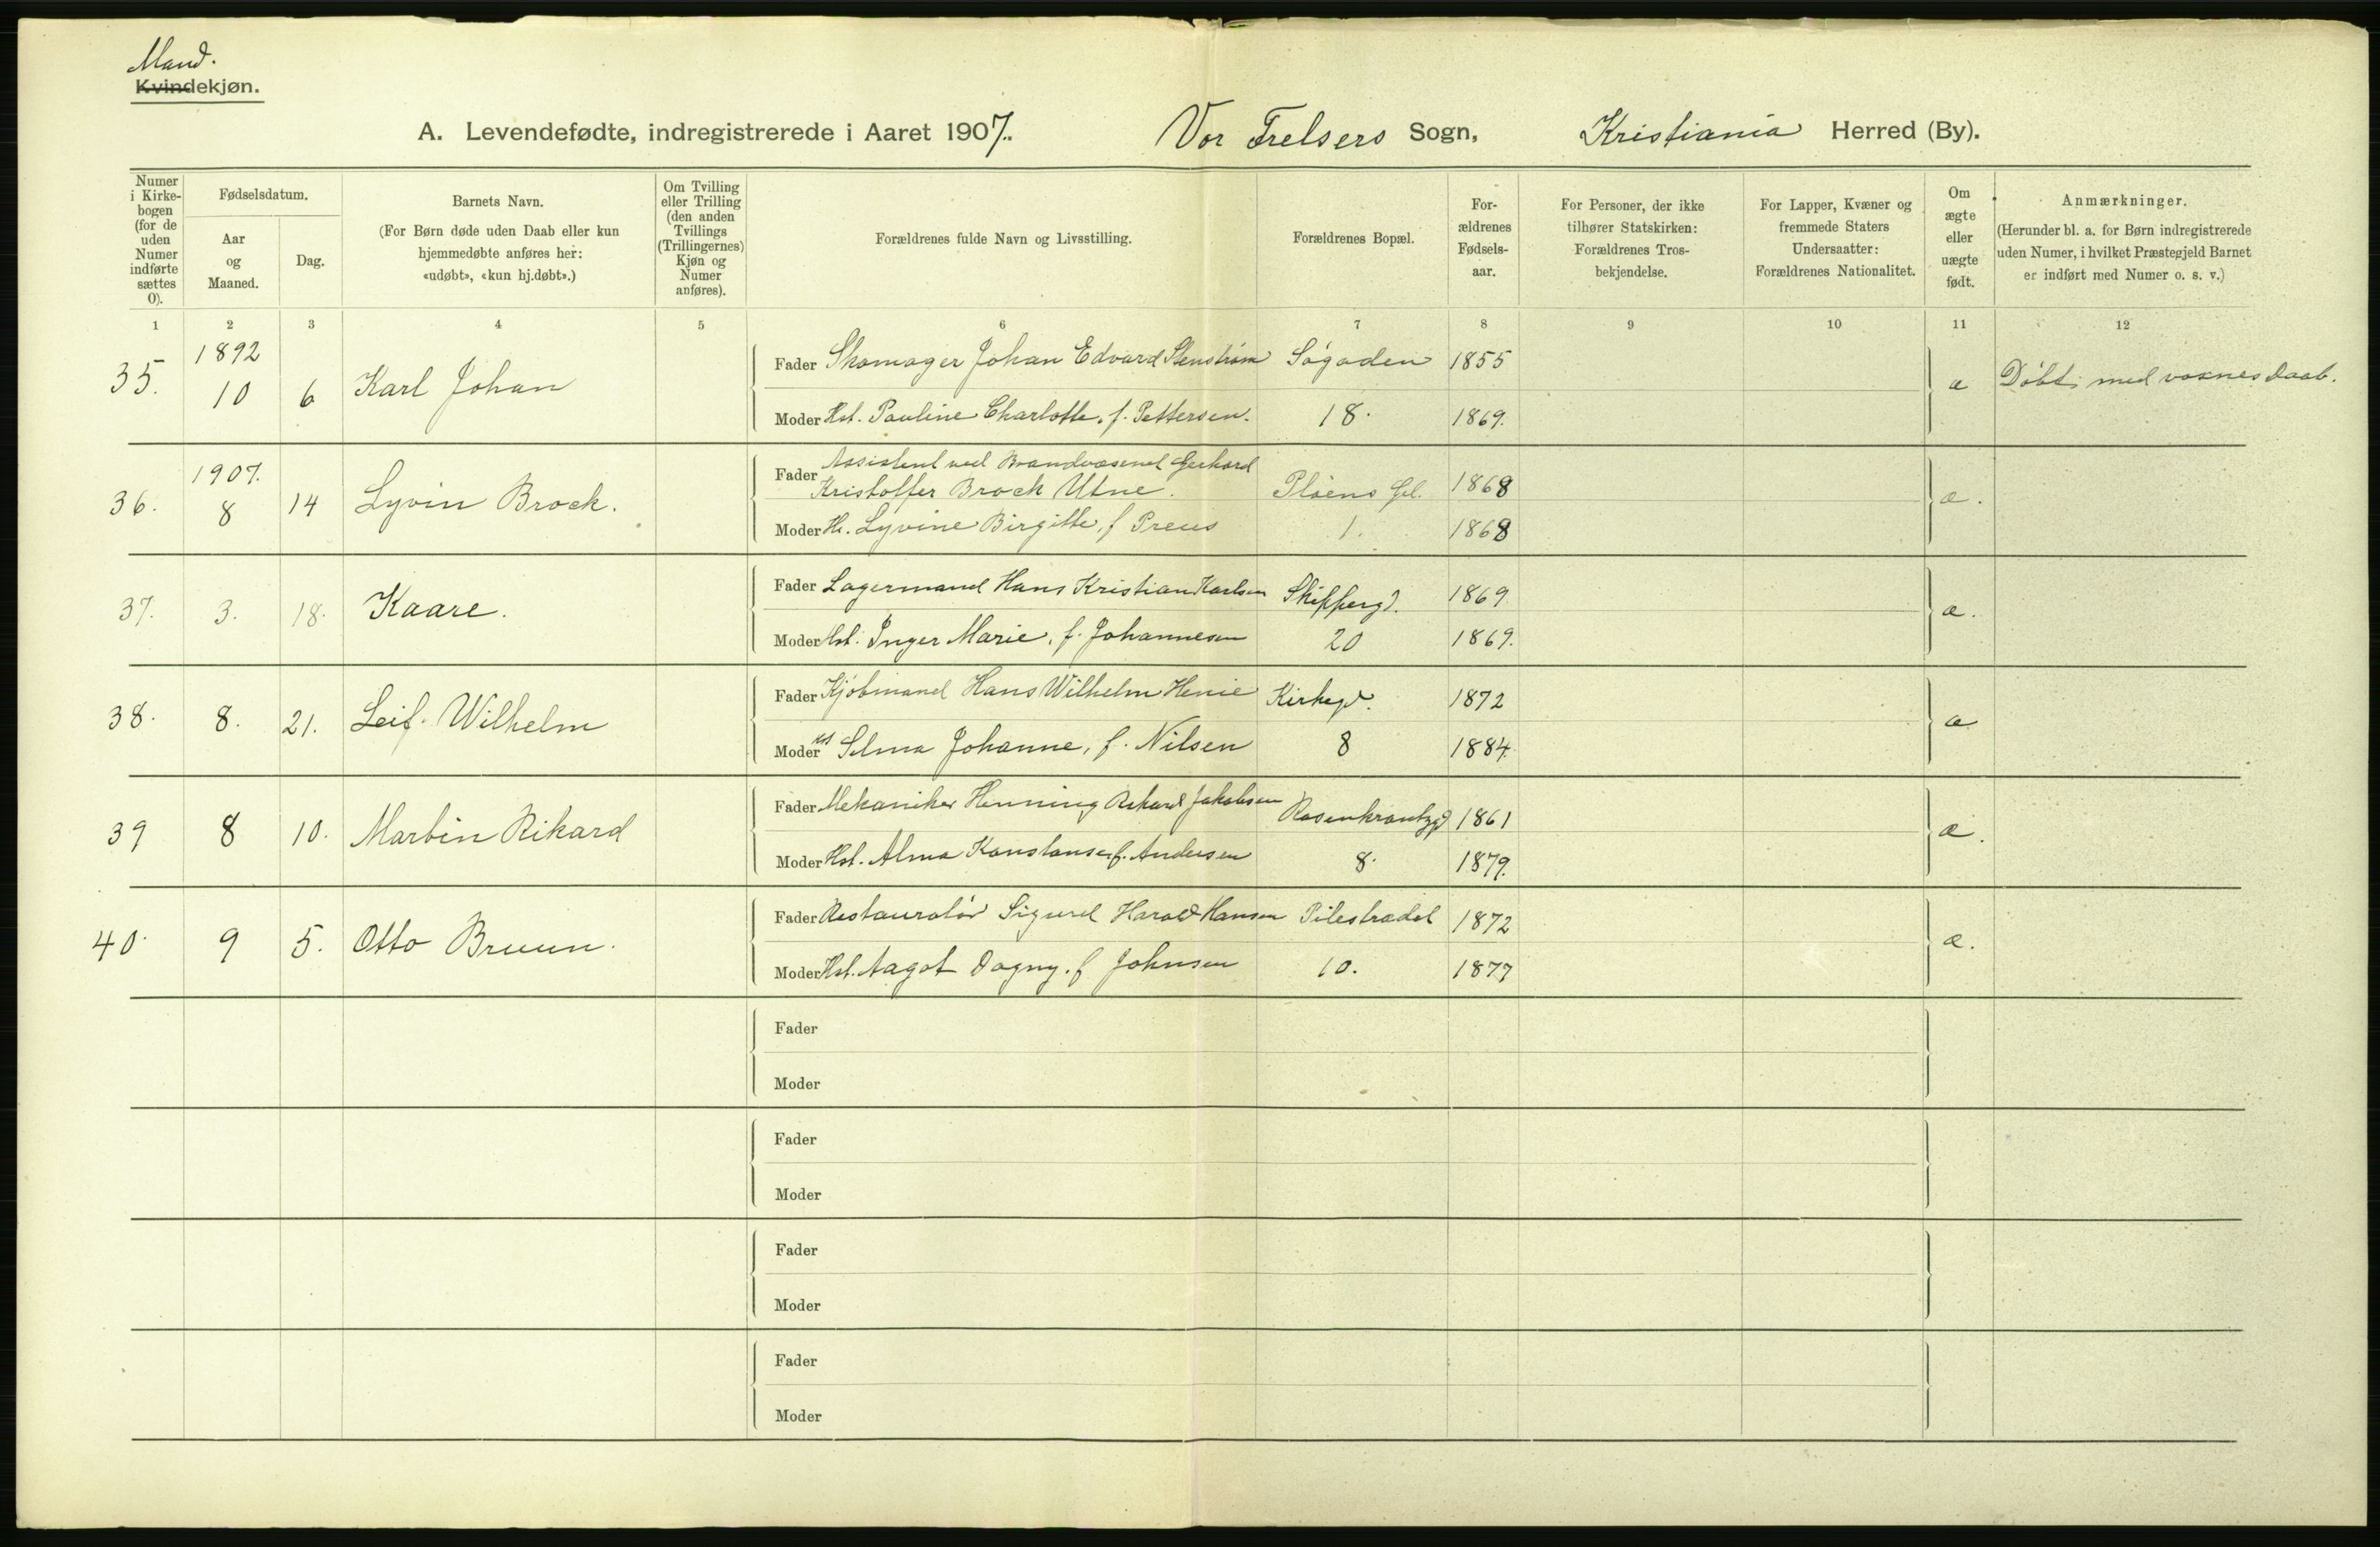 Mand.
Kvindekjøn.
A. Levendefødte, indregistrerede i Aaret 1907. Vor Frelsers Sogn, Kristiania Herred (By).
Numer i Kirke-bogen (for de uden Numer indførte sættes 0).
Fødselsdatum.
Aar og Maaned.
Dag.
Barnets Navn.
(For Børn døde uden Daab eller kun hjemmedøbte anføres her: «udøbt», «kun hj.døbt».)
Om Tvilling eller Trilling (den anden Tvillings (Trillingernes) Kjøn og Numer anføres).
Forældrenes fulde Navn og Livsstilling.
Forældrenes Bopæl.
For-ældrenes Fødsels-aar.
For Personer, der ikke tilhører Statskirken: Forældrenes Tros-bekjendelse.
For Lapper, Kvæner og fremmede Staters Undersaatter: Forældrenes Nationalitet.
Om ægte eller uægte født.
Anmærkninger.
(Herunder bl. a. for Børn indregistrerede uden Numer, i hvilket Præstegjeld Barnet er indført med Numer o. s. v.)
1 2 3 4 5 6 7 8 9 10 11 12
35. 1892 10 6 Karl Johan
Fader Skomager Johan Edvard Stenstrøm Søgaden 1855
Moder Hst. Pauline Charlotte, f. Pettersen. 18. 1869.
æ Døbt med voxnes Daab.
36. 1907. 8 14 Lyvin Brock.
Fader Assistent ved Brandvæsenet Gerhard
Kristoffer Brock Utne. Pløens Gd. 1868
Moder H. Lyvine Birgitte, f Preus 1. 1868
æ.
37. 3. 18. Kaare.
Fader Lagermand Hans Kristian Karlsen Skipperg. 1869
Moder Hst. Inger Marie, f. Johannesen 20 1869.
æ.
38. 8. 21. Leif Wilhelm
Fader Kjøbmand Hans Wilhelm Henie Kirkegd. 1872
Moder Selma Johanne, f. Nilsen 8 1884.
æ
39 8 10. Martin Rikard
Fader Mekaniker Henning Rikard Jakobsen Rosenkrantzgd 1861
Moder Hst. Alma Konstanse, f. Andersen 8. 1879.
æ.
40. 9 5. Otto Bruun.
Fader Restauratør Sigurd Harald Hansen Pilestrædet 1872
Moder Hst. Aagot Dagny. f Johnsen 10. 1877
æ.
Fader
Moder
Fader
Moder
Fader
Moder
Fader
Moder